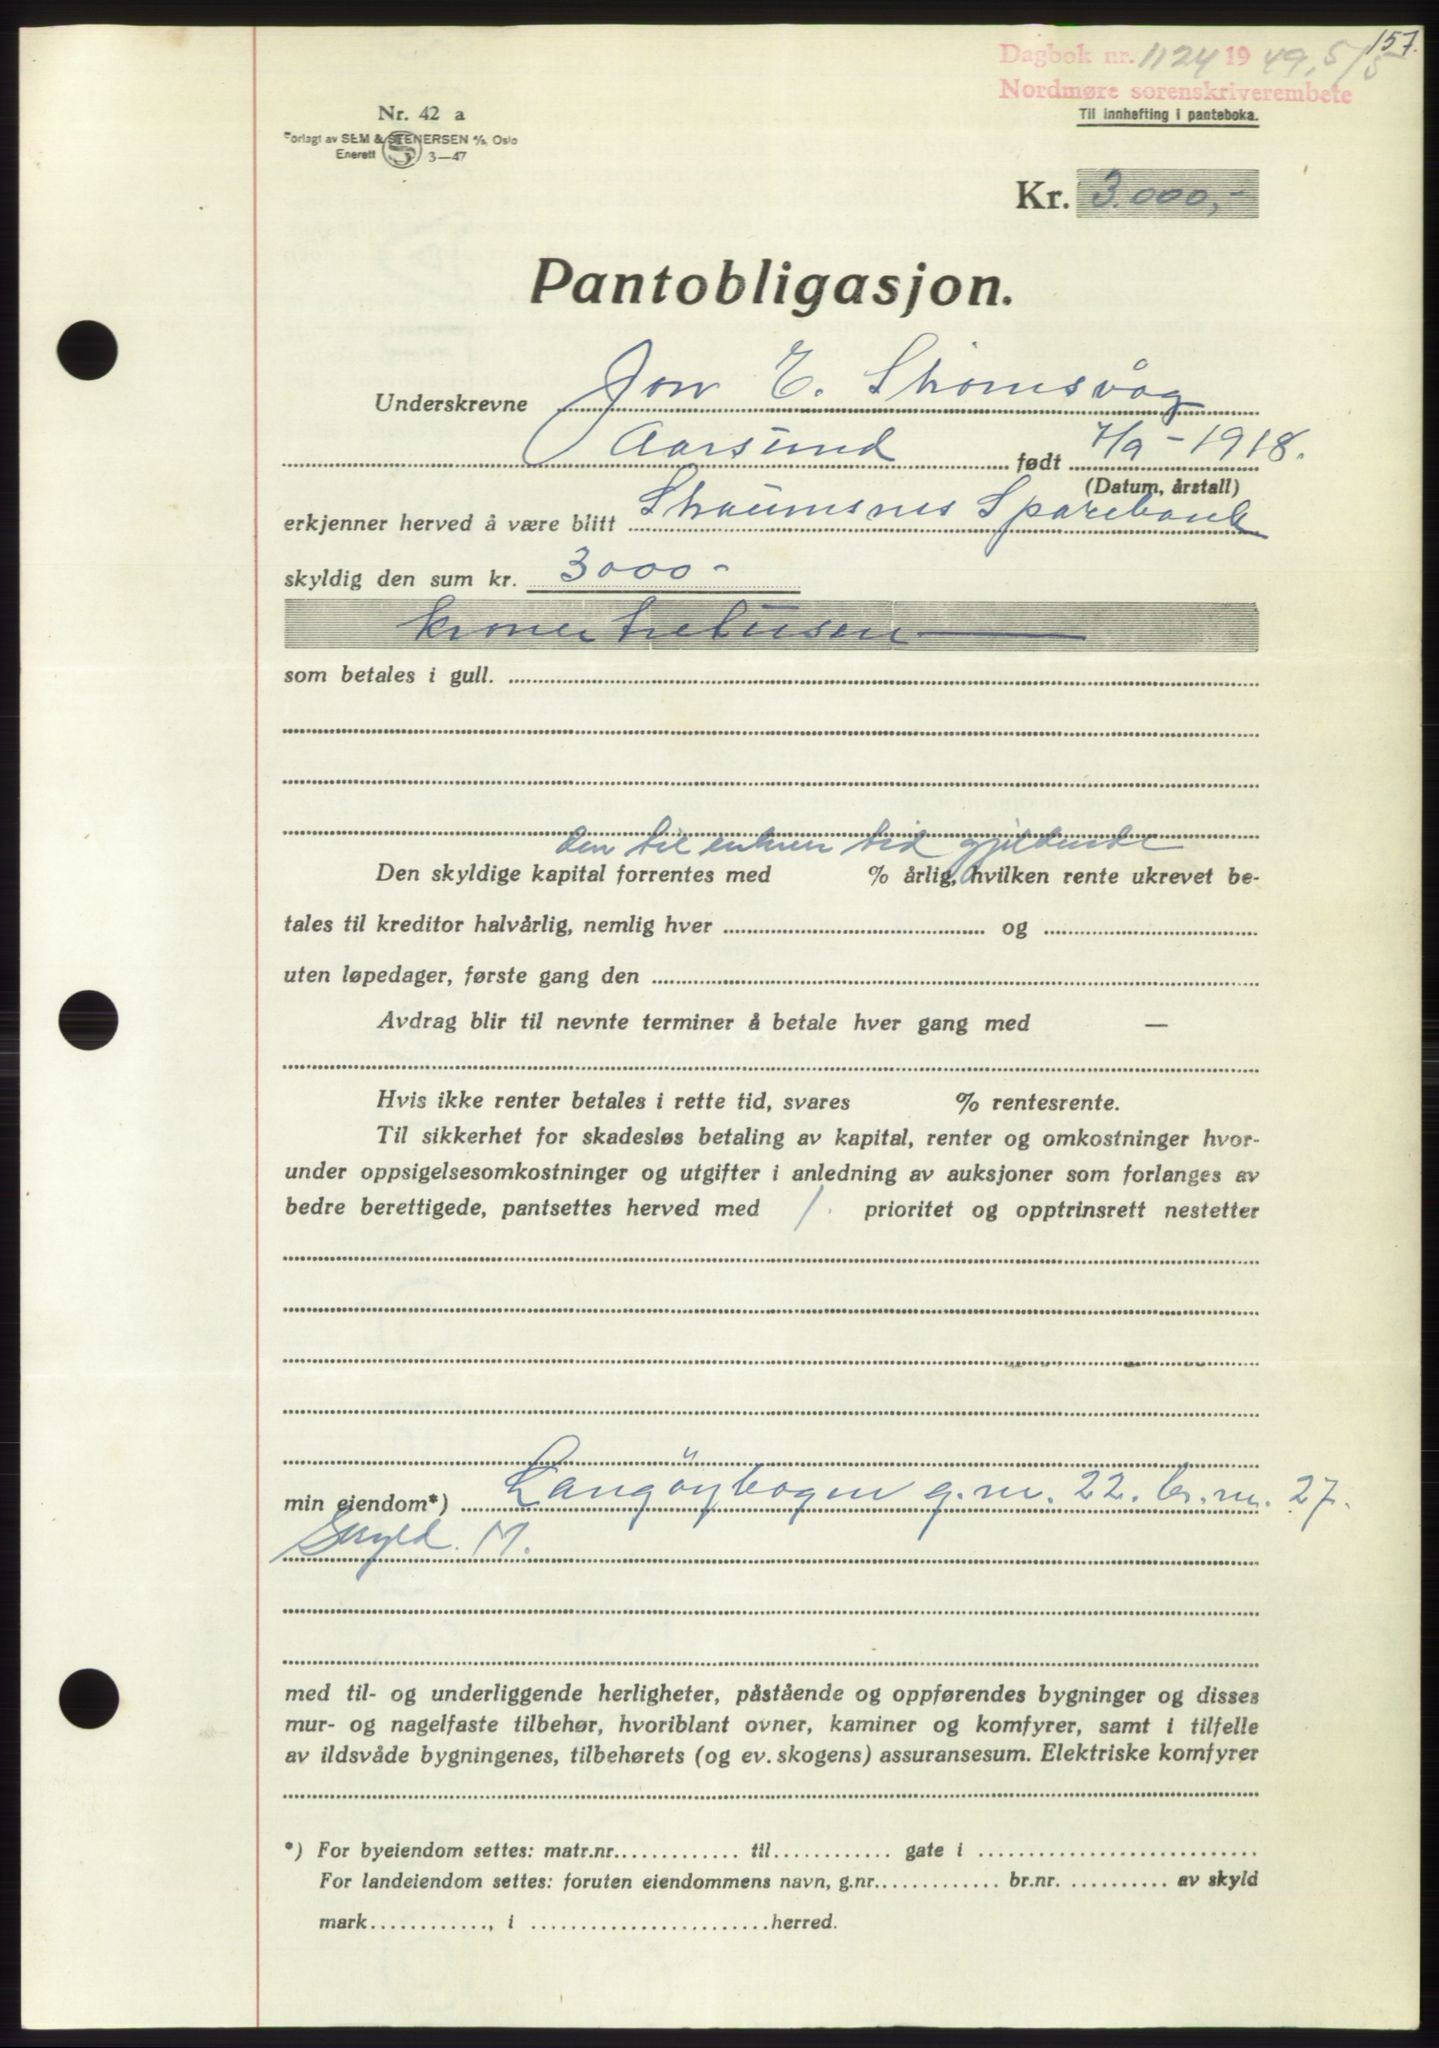 157.
Dagbok nr. 1124 1949, 5/5
Nordmøre sorenskriverembete
Til innhefting i panteboka.
Nr. 42 a
Forlagt av SEM & STENERSEN A/S, Oslo
Enerett S 3—47
Kr. 3.000,-
Pantobligasjon.
Underskrevne Jon E. Strömsvåg
Aarsund født 7/9-1918.
(Datum, årstall)
erkjenner herved å være blitt Straumsnes Sparebank
skyldig den sum kr. 3000-
kroner tretusen
som betales i gull.
den til enhver tid gjeldende
Den skyldige kapital forrentes med % årlig, hvilken rente ukrevet be-
tales til kreditor halvårlig, nemlig hver og
uten løpedager, første gang den
Avdrag blir til nevnte terminer å betale hver gang med —
Hvis ikke renter betales i rette tid, svares % rentesrente.
Til sikkerhet for skadesløs betaling av kapital, renter og omkostninger hvor-
under oppsigelsesomkostninger og utgifter i anledning av auksjoner som forlanges av
bedre berettigede, pantsettes herved med 1. prioritet og opptrinsrett nestetter
min eiendom*) Langöybogen g.nr. 22. br.nr. 27.
Skyld. M.
med til- og underliggende herligheter, påstående og oppførendes bygninger og disses
mur- og nagelfaste tilbehør, hvoriblant ovner, kaminer og komfyrer, samt i tilfelle
av ildsvåde bygningenes, tilbehørets (og ev. skogens) assuransesum. Elektriske komfyrer
*) For byeiendom settes: matr.nr............. til............ gate i ............................
For landeiendom settes: foruten eiendommens navn, g.nr............. br.nr. .......... av skyld
mark............, i ........................herred.